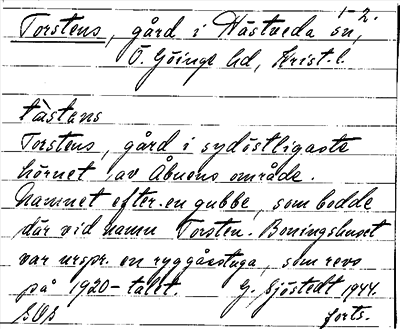 1-2.
Torstens, gård i Västveda sn,
Ö. Göinge hd, Krist. l.
tàstens
Torstens, gård i sydöstligaste
hörnet av Åbuens område.
Namnet efter en gubbe, som bodde
där vid namn Torsten. Boningshuset
var urspr. en ryggåsstuga, som revs
på 1920-talet. G. Sjöstedt 1944.
forts.